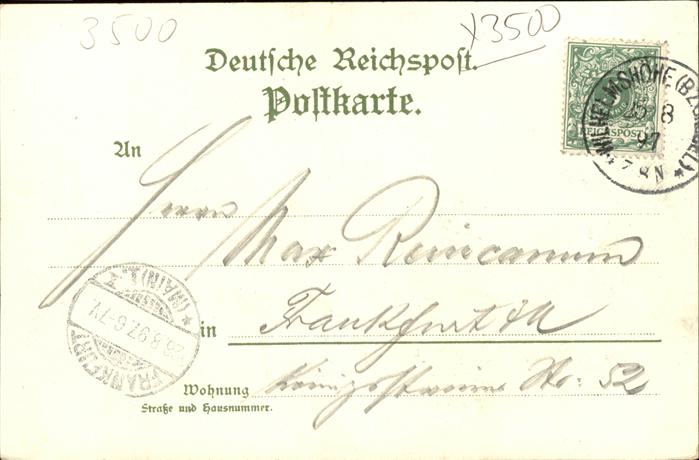 3500
x3500
Deutsche Reichspost.
Postkarte.
REICHSPOST
WILHELMSHÖHE
25 8
97
7-8 N
An
Herrn
Max
in
Frankfurt a/M
FRANKFURT (MAIN) 1.
26.8.97. 6-7V.
Wohnung
Straße und Hausnummer.
No: 52